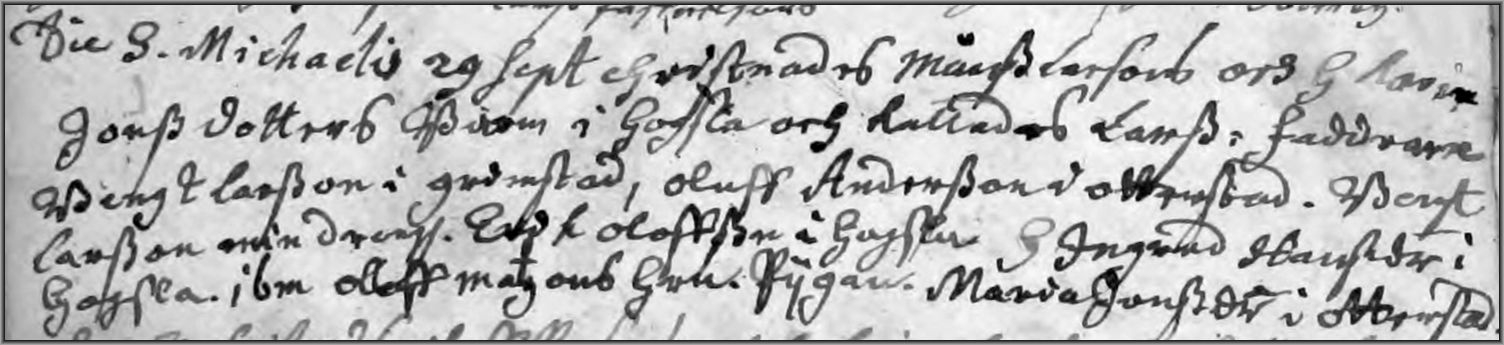 Die S. Michaelis 29 Sept christnades Månß Larsons och H Karin
Jonß dotters Barn i Hogsla och kallades Larß: faddrarne
Bengt larßon i grimstad, oluff Anderßon i otterstad. Bengt
larßon min dreng. Erik oloffßn i hogsla H Ingred Hansdr i
hogsla. ibm oloff matzons hru. Pigan. Maria Jonßdr i otterstad